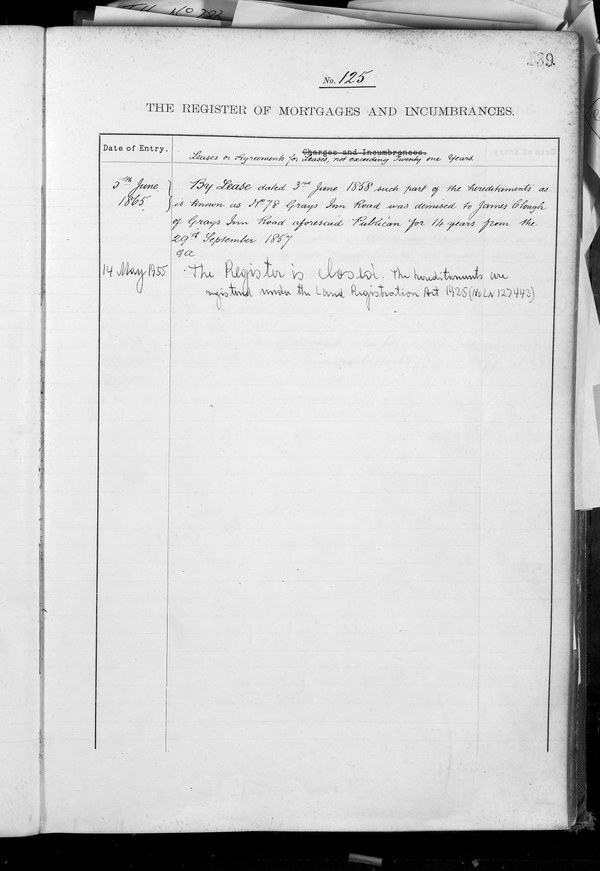 239.
No. 125
THE REGISTER OF MORTGAGES AND INCUMBRANCES.
Date of Entry.
Charges and Incumbrances.
Leases or Agreements for Leases, not exceeding Twenty one Years.
5th June
1865
By Lease dated 3rd June 1858 such part of the hereditaments as
is known as No 78 Grays Inn Road was demised to James Clough
of Grays Inn Road aforesaid Publican for 14 years from the
29th September 1857
14 May 1955
The Register is closed. The hereditaments are
registered under the Land Registration Act 1925 (No LN 127443)